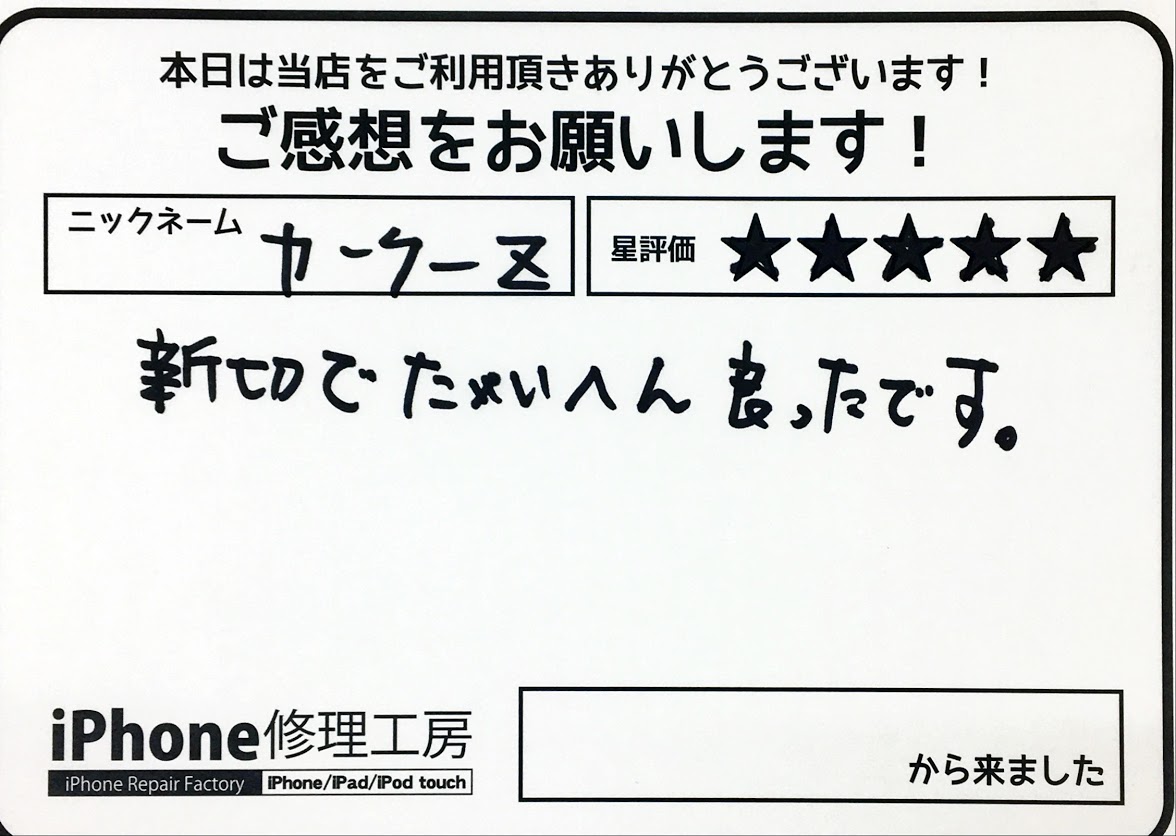 本日は当店をご利用頂きありがとうございます！
ご感想をお願いします！
ニックネーム カークーZ
星評価 ★★★★★
新切でたいへん良ったです。
iPhone修理工房
iPhone Repair Factory iPhone/iPad/iPod touch
から来ました